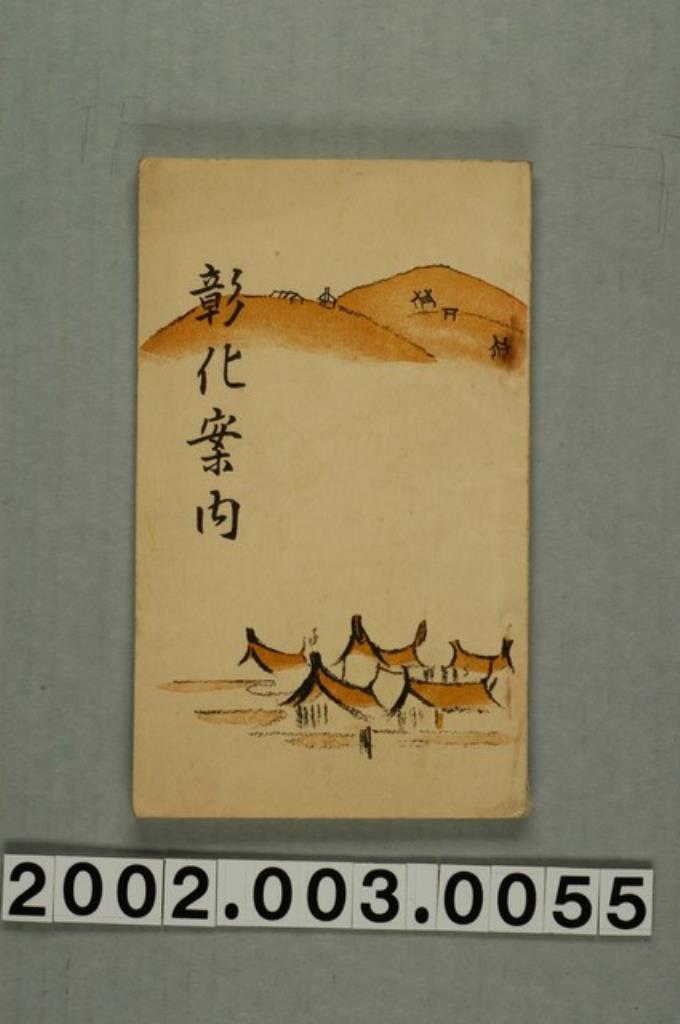 彰化案内
2002.003.0055